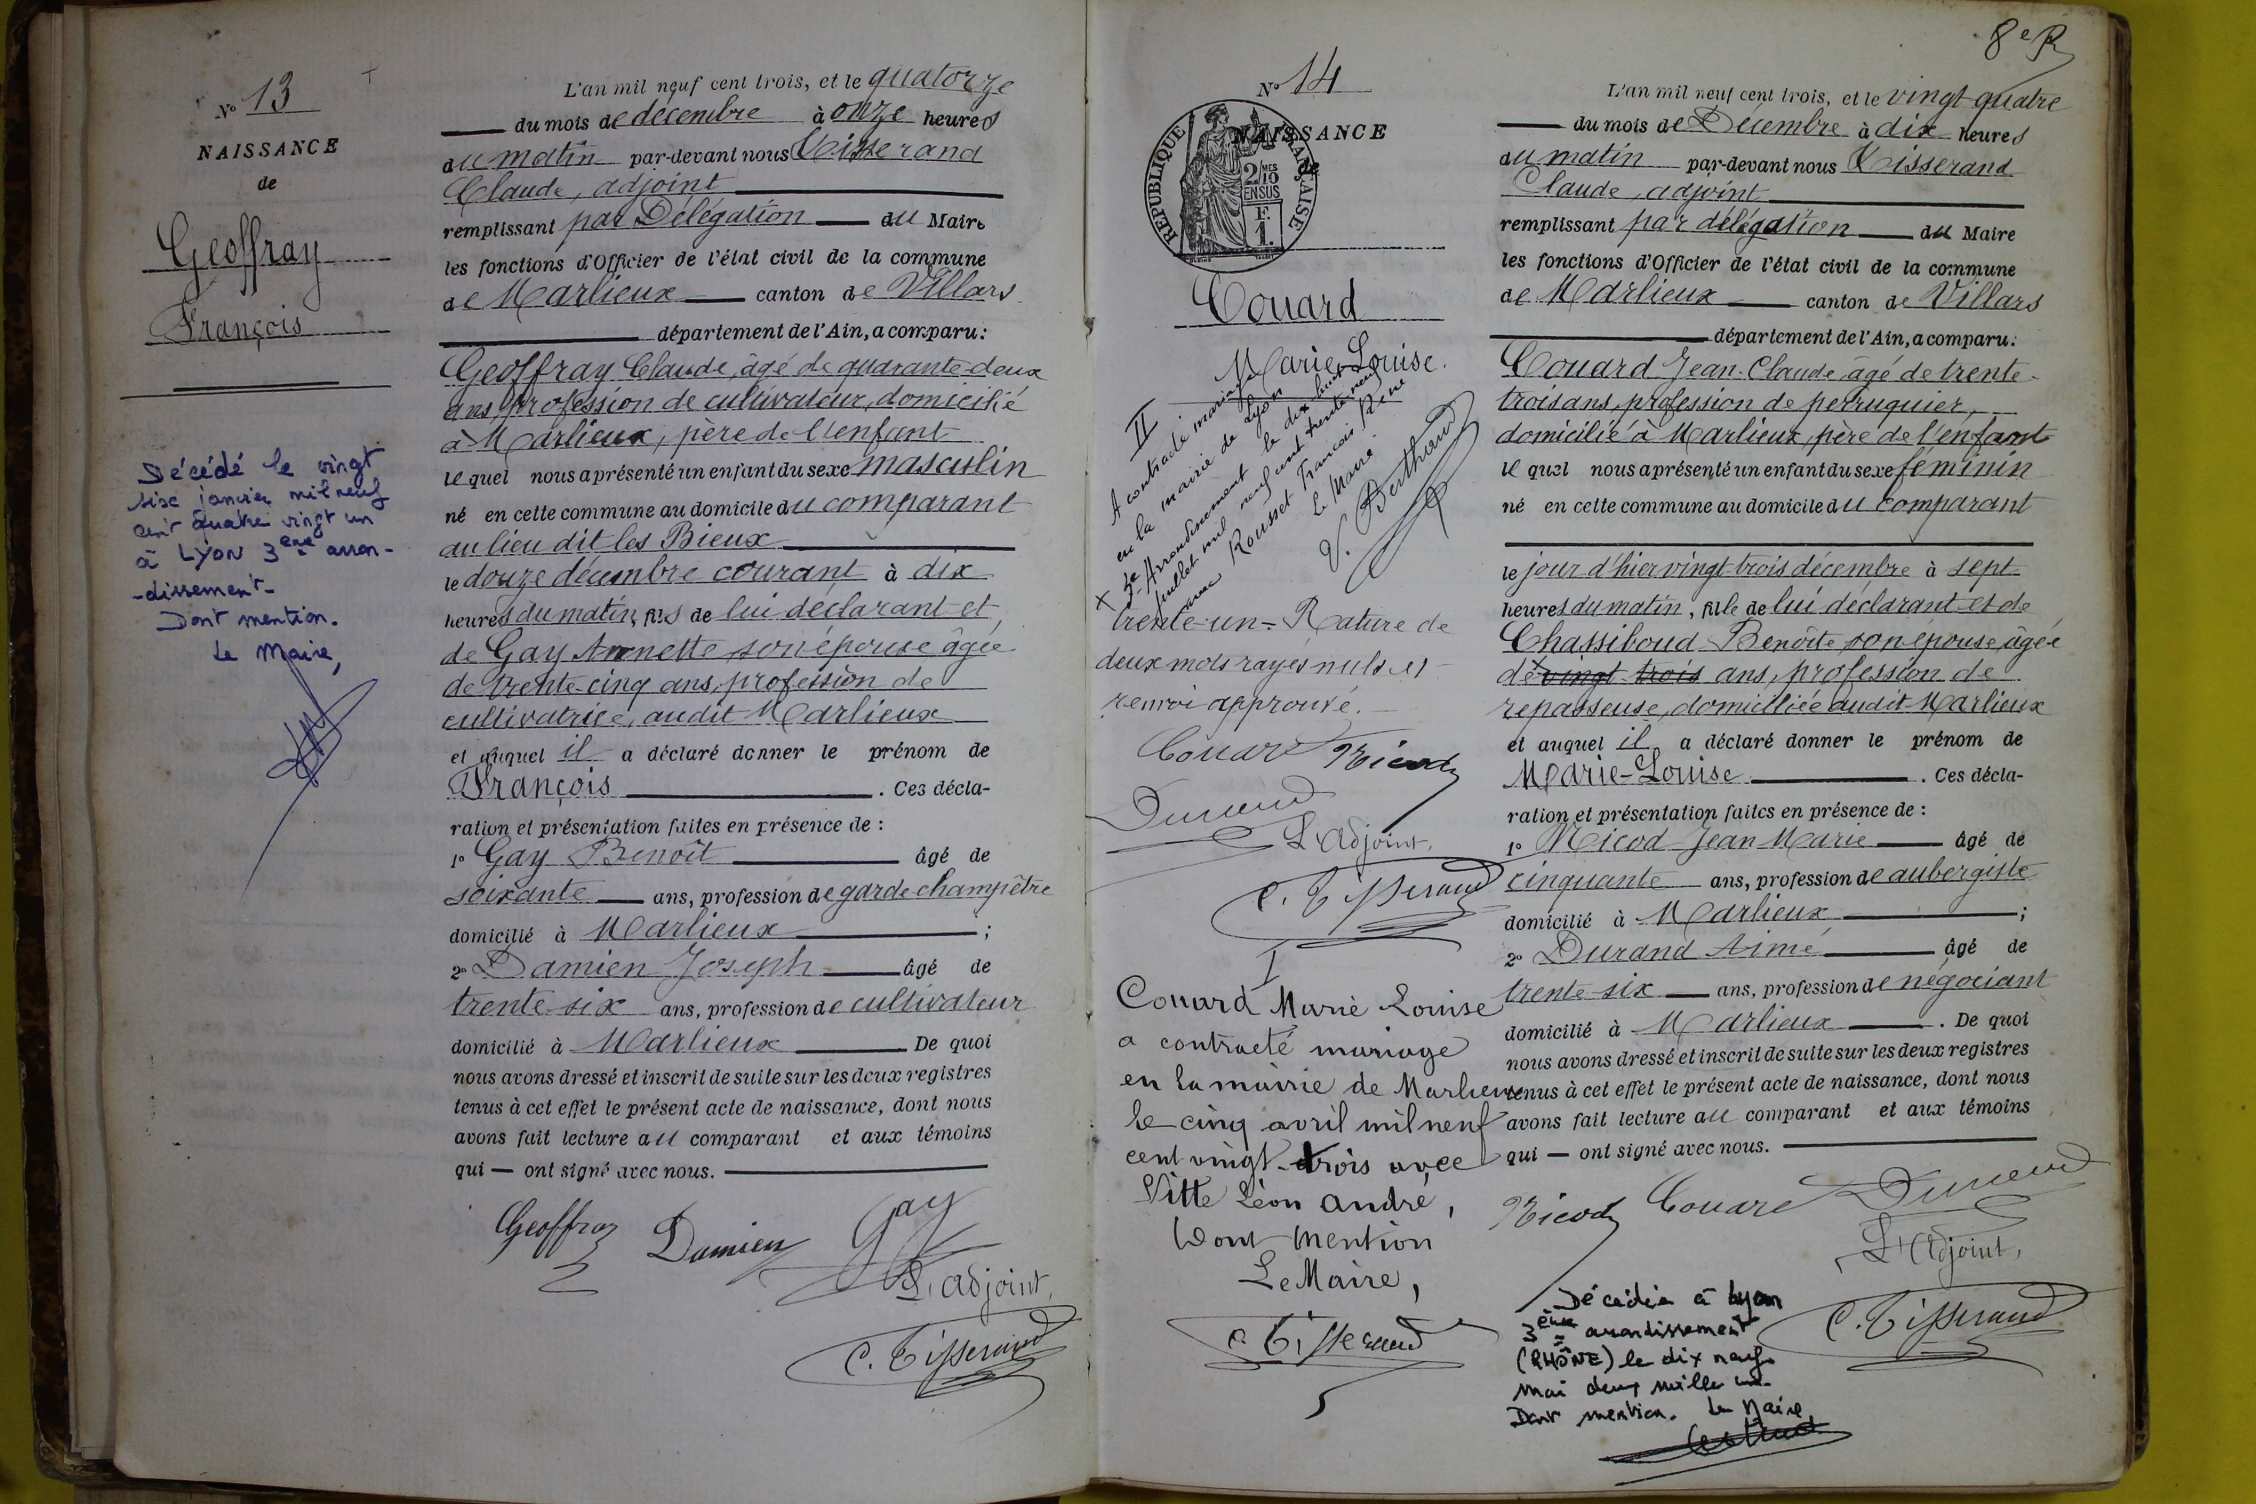 No 13
NAISSANCE
de
Geoffray
François
Décédé le vingt
six janvier mil neuf
cent quatre vingt un
à Lyon 3ème arron-
-dissement-
Dont mention.
Le Maire,
L'an mil neuf cent trois, et le quatorze
du mois de décembre à onze heures
du matin par-devant nous Tisserand
Claude, adjoint
remplissant par Délégation du Maire
les fonctions d'Officier de l'état civil de la commune
de Marlieux canton de Villars
département de l'Ain, a comparu:
Geoffray Claude, âgé de quarante-deux
ans, profession de cultivateur, domicilié
à Marlieux, père de l'enfant
le quel nous a présenté un enfant du sexe masculin
né en cette commune au domicile du comparant
au lieu dit les Bieux
le douze décembre courant à dix
heures du matin, fils de lui déclarant et
de Gay Annette son épouse âgée
de trente-cinq ans, profession de
cultivatrice, audit Marlieux
et auquel il a déclaré donner le prénom de
François. Ces décla-
ration et présentation faites en présence de :
1° Gay Benoît âgé de
soixante ans, profession de garde champêtre
domicilié à Marlieux ;
2° Damien Joseph âgé de
trente-six ans, profession de cultivateur
domicilié à Marlieux De quoi
nous avons dressé et inscrit de suite sur les deux registres
tenus à cet effet le présent acte de naissance, dont nous
avons fait lecture au comparant et aux témoins
qui — ont signé avec nous.
Geoffray Damien Gay
L'adjoint,
C. Tisserand
8e R
No 14
NAISSANCE
de
REPUBLIQUE FRANÇAISE
2/10MES
EN SUS
F.
1.
Couard
Marie-Louise.
II
A contracté mariage
en la mairie de Lyon
3e Arrondissement le dix huit
juillet mil neuf cent trente neuf
avec Rousset François René
Le Maire
V. Berthaud
x trente-un = Rature de
deux mots rayés nuls et
renvoi approuvé.
Couard Nicod
Durand
L'Adjoint,
C. Tisserand
I
Couard Marie Louise
a contracté mariage
en la mairie de Marlieux
le cinq avril mil neuf
cent vingt-trois avec
Vitte Léon André,
Dont Mention
Le Maire,
C. Tisserand
L'an mil neuf cent trois, et le vingt quatre
du mois de Décembre à dix heures
du matin par-devant nous Tisserand
Claude, adjoint
remplissant par délégation du Maire
les fonctions d'Officier de l'état civil de la commune
de Marlieux canton de Villars
département de l'Ain, a comparu:
Couard Jean-Claude âgé de trente-
trois ans, profession de perruquier,
domicilié à Marlieux, père de l'enfant
le quel nous a présenté un enfant du sexe féminin
né en cette commune au domicile du comparant
le jour d'hier vingt-trois décembre à sept
heures du matin, fille de lui déclarant et de
Chassiboud Benoîte son épouse, âgée
de x vingt trois ans, profession de
repasseuse, domiciliée audit Marlieux
et auquel il a déclaré donner le prénom de
Marie-Louise. Ces décla-
ration et présentation faites en présence de :
1° Nicod Jean Marie âgé de
cinquante ans, profession de aubergiste
domicilié à Marlieux ;
2° Durand Aimé âgé de
trente-six ans, profession de négociant
domicilié à Marlieux. De quoi
nous avons dressé et inscrit de suite sur les deux registres
tenus à cet effet le présent acte de naissance, dont nous
avons fait lecture au comparant et aux témoins
qui — ont signé avec nous.
Nicod Couard Durand
L'Adjoint,
C. Tisserand
Décédée à Lyon
3ème arrondissement
(RHÔNE) le dix neuf
mai deux mille un.
Dont mention. Le Maire,